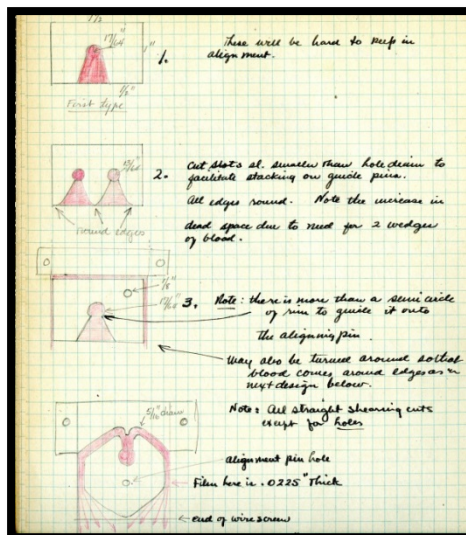 17/64"
1"
1/2"
First type
1.
These will be hard to keep in
alignment.
2.
Cut slots sl. smaller than hole diam to
facilitate stacking on guide pins.
All edges round. Note the increase in
dead space due to need for 2 wedges
of blood.
round edges
1/8"
3.
Note: there is more than a semi circle
of rim to guide it onto
the aligning pin.
May also be turned around so that
blood comes around edges as in
next design below.
5/16" diam
Note: All straight shearing cuts
except for holes
alignment pin hole
Film here is .0225" thick
end of wire screen